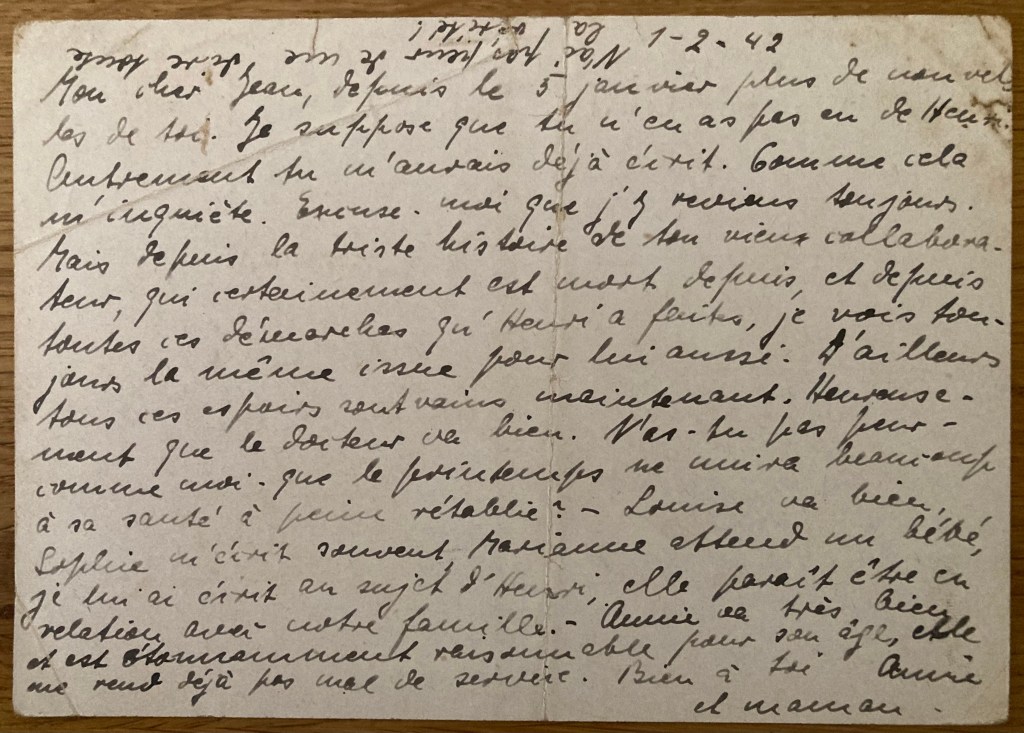 1-2-42
Mon cher Jean, depuis le 5 janvier plus de nouvel-
les de toi. Je suppose que tu n'en as pas eu de Henri.
Autrement tu m'aurais déjà écrit. Comme cela
m'inquiète. Excuse-moi que j'y reviens toujours.
Mais depuis la triste histoire de ton vieux collabora-
teur, qui certainement est mort depuis, et depuis
toutes ces démarches qu'Henri a faites, je vois tou-
jours la même issue pour lui aussi. D'ailleurs
tous ces espoirs sont vains maintenant. Heureuse-
ment que le docteur va bien. N'as-tu pas peur -
comme moi - que le printemps ne nuira beaucoup
à sa santé à peine rétablie? - Louise va bien,
Sophie m'écrit souvent, Marianne attend un bébé,
je lui ai écrit au sujet d'Henri, elle paraît être en
relation avec notre famille. - Annie va très bien
et est étonnamment raisonnable pour son âge, elle
me rend déjà pas mal de service. Bien à toi Annie
et maman -
N'aie pas peur de me dire toute
la vérité!